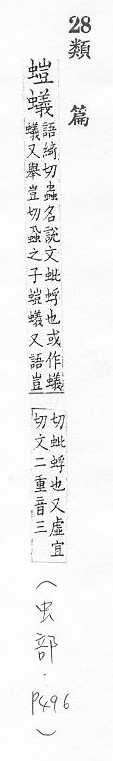 28
類篇
螘蟻
語綺切蟲名說文蚍蜉也或作蟻
蟻又舉豈切蝨之子螘蟻又語豈
切蚍蜉也又虛宜
切文二重音三
(虫部.P496)